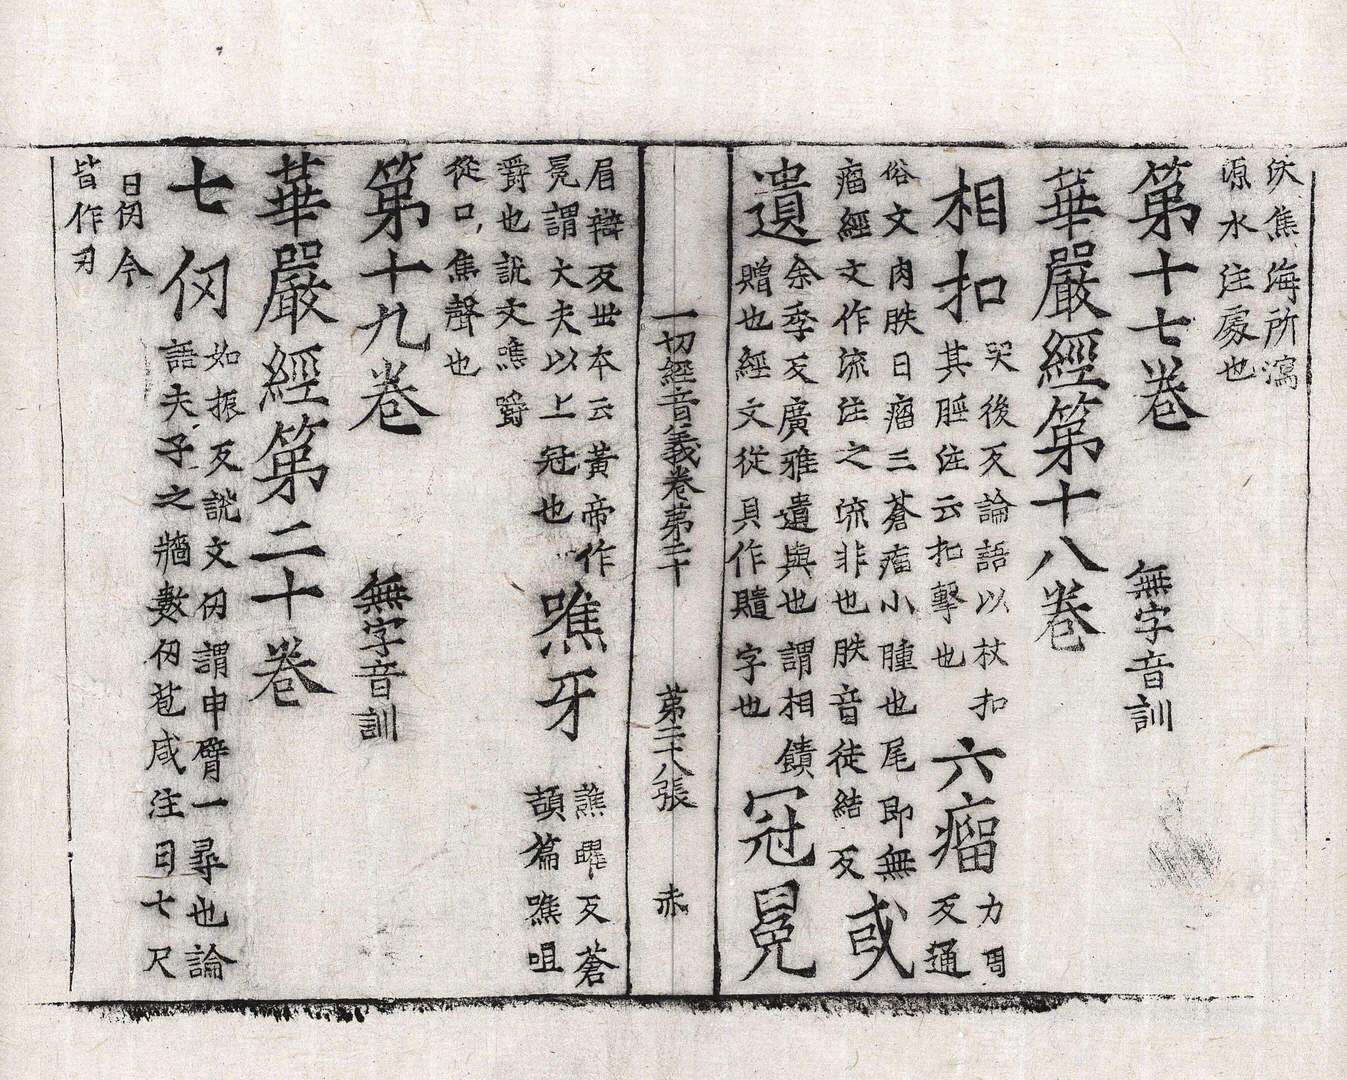 沃焦海所瀉
源水注處也
第十七卷 無字音訓
華嚴經第十八卷
相扣 哭後反論語以杖扣
其脛注云扣擊也 六瘤 力周
反通
俗文肉胅曰瘤三蒼瘤小腫也尾即無
瘤經文作流注之流非也胅音徒結反 或
遺 余季反廣雅遺與也謂相饋
贈也經文從貝作䞇字也 冠冕
眉辯反世本云黃帝作
冕謂大夫以上冠也 噍牙 譙曜反蒼
頡篇噍咀
嚼也說文噍嚼
從口焦聲也
第十九卷 無字音訓
華嚴經第二十卷
七仞 如振反說文仞謂申臂一尋也論
語夫子之牆數仞苞咸注曰七尺
曰仞今
皆作刃
一切經音義卷第二十 第二十八張 赤